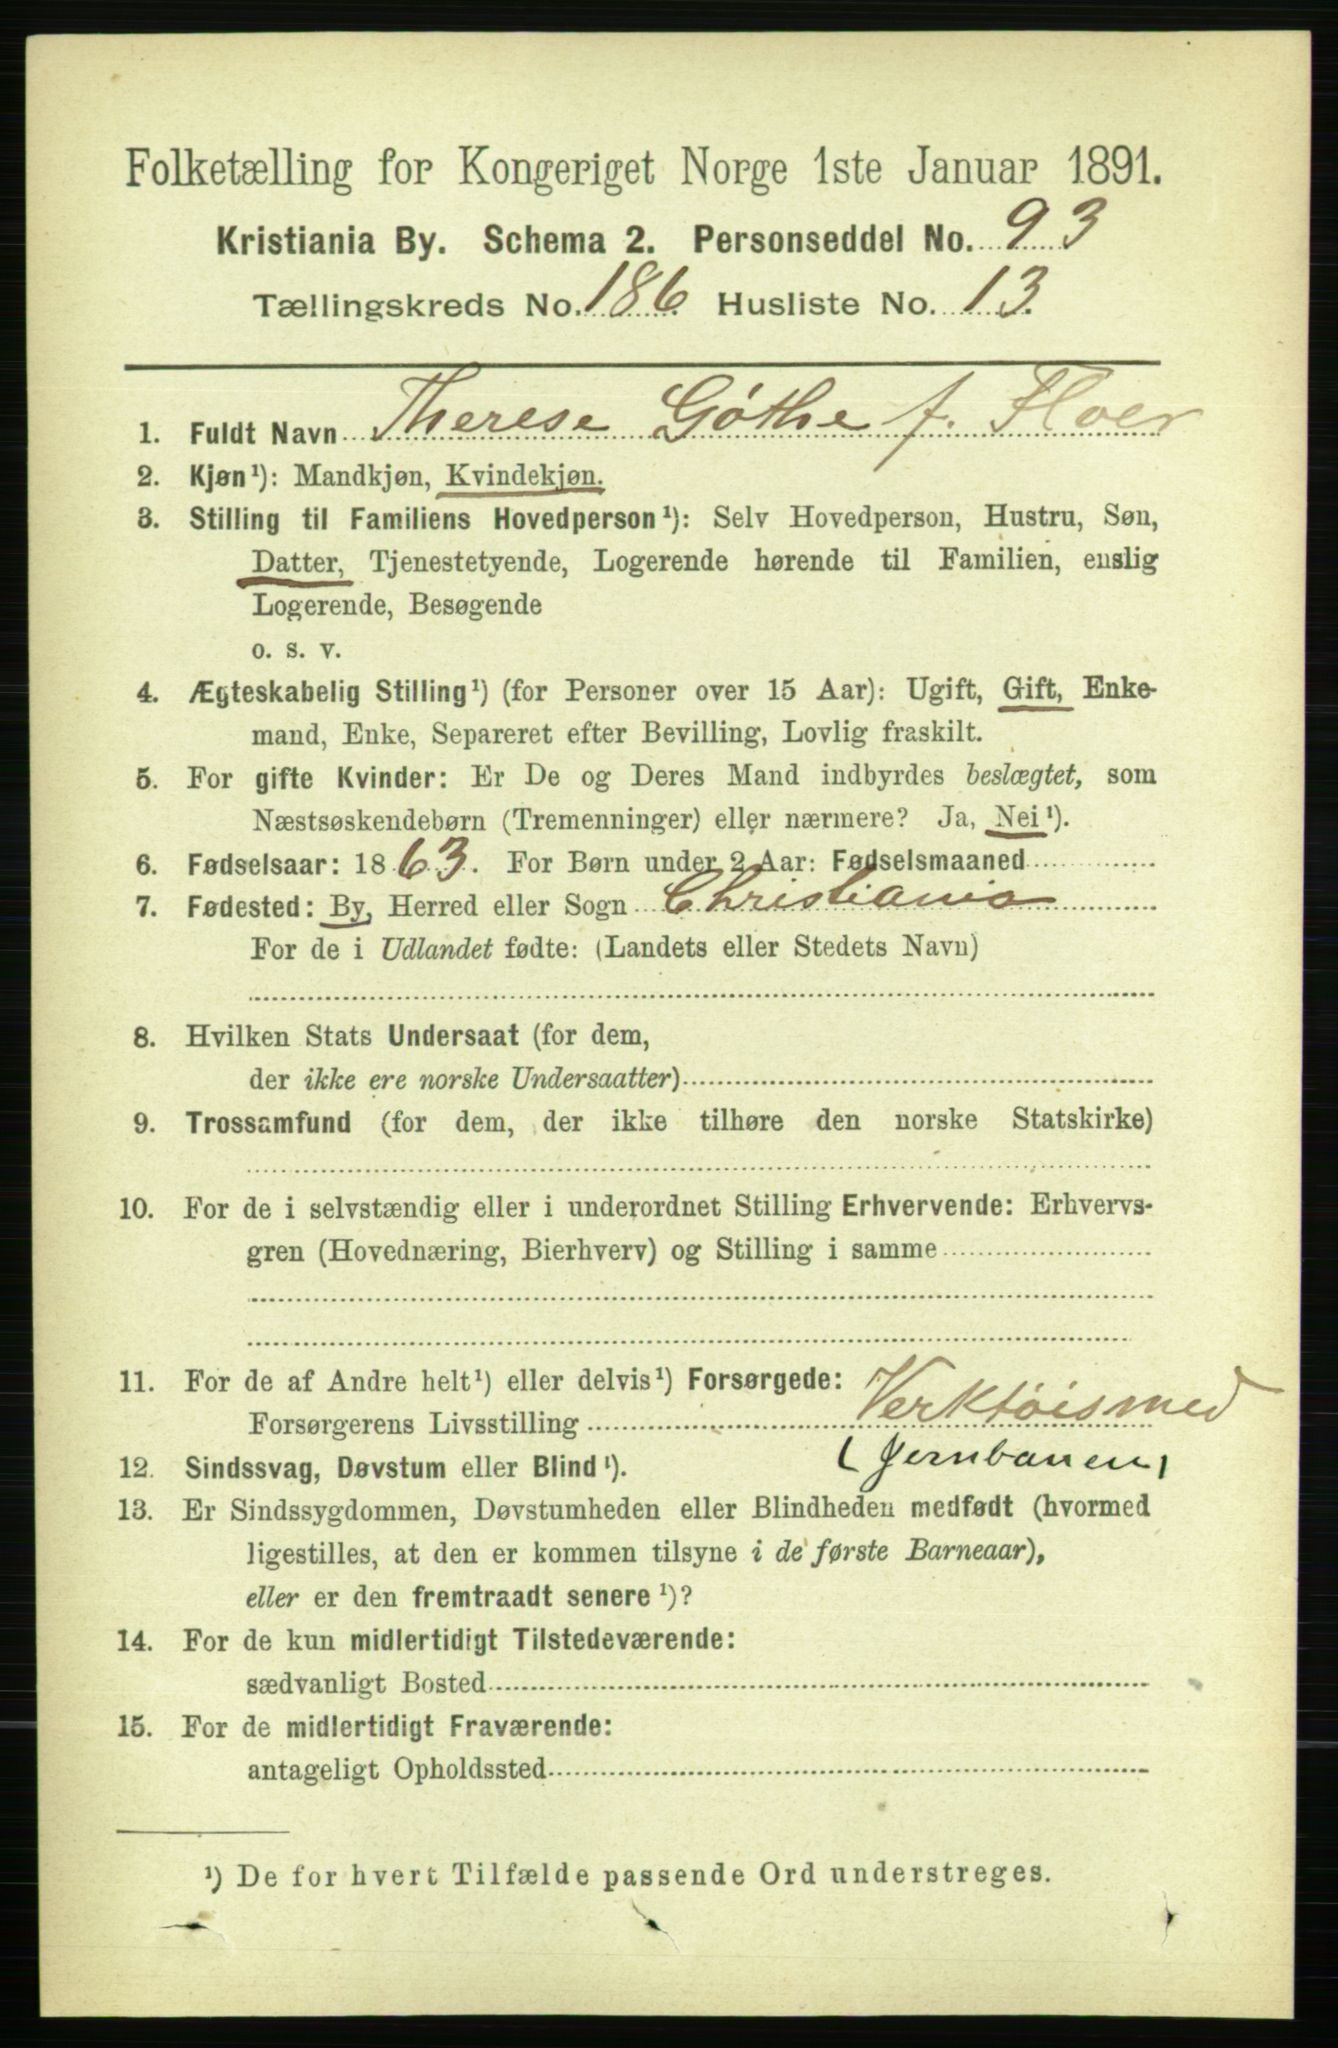 Folketælling for Kongeriget Norge 1ste Januar 1891.
Kristiania By. Schema 2. Personseddel No. 93
Tællingskreds No. 186. Husliste No. 13.
1. Fuldt Navn Therese Gøthe f. Floer
2. Kjøn¹): Mandkjøn, Kvindekjøn.
3. Stilling til Familiens Hovedperson¹): Selv Hovedperson, Hustru, Søn,
Datter, Tjenestetyende, Logerende hørende til Familien, enslig
Logerende, Besøgende
o. s. v.
4. Ægteskabelig Stilling¹) (for Personer over 15 Aar): Ugift, Gift, Enke-
mand, Enke, Separeret efter Bevilling, Lovlig fraskilt.
5. For gifte Kvinder: Er De og Deres Mand indbyrdes beslægtet, som
Næstsøskendebørn (Tremenninger) eller nærmere? Ja, Nei¹).
6. Fødselsaar: 1863. For Børn under 2 Aar: Fødselsmaaned
7. Fødested: By, Herred eller Sogn Christiania
For de i Udlandet fødte: (Landets eller Stedets Navn)
8. Hvilken Stats Undersaat (for dem,
der ikke ere norske Undersaatter)
9. Trossamfund (for dem, der ikke tilhøre den norske Statskirke)
10. For de i selvstændig eller i underordnet Stilling Erhvervende: Erhvervs-
gren (Hovednæring, Bierhverv) og Stilling i samme
11. For de af Andre helt¹) eller delvis¹) Forsørgede:
Forsørgerens Livsstilling Verktøismed
(Jernbanen)
12. Sindssvag, Døvstum eller Blind¹).
13. Er Sindssygdommen, Døvstumheden eller Blindheden medfødt (hvormed
ligestilles, at den er kommen tilsyne i de første Barneaar),
eller er den fremtraadt senere¹)?
14. For de kun midlertidigt Tilstedeværende:
sædvanligt Bosted
15. For de midlertidigt Fraværende:
antageligt Opholdssted
¹) De for hvert Tilfælde passende Ord understreges.